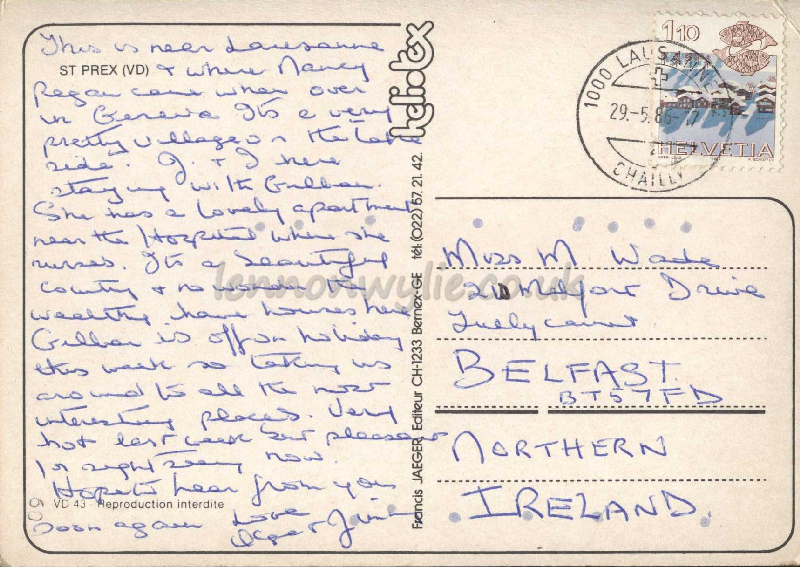 This is near Lausanne
ST PREX (VD)
& where Nancy
Regan came when over
in Geneva It's a very
pretty village on the Lake
side. J. & I here
staying with Gillian.
She has a lovely apartment
near the Hospital where she
nurses. It's a beautiful
country & no wonder the
wealthy have houses here
Gillian is off on holiday
this week so taking us
around to all the most
interesting places. Very
hot last week but pleasant
for sight seeing now.
Hope to hear from you
VD 43 - Reproduction interdite
soon again Love
& Jim
heliotex
Francis JAEGER, Editeur CH-1233 Bernex-GE tél. (022) 57 21 42
1 10
HELVETIA
1000 LAUSANNE
29.-5.86-17
CHAILLY
Miss M Wade
Drive
Tullycarnet
BELFAST
BT5 7FD
NORTHERN
IRELAND.
lennonwylie.co.uk